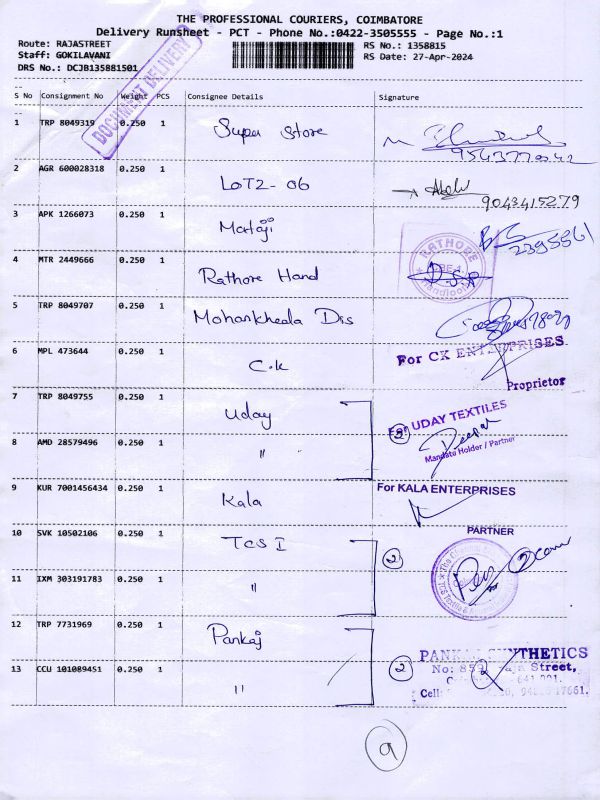 THE PROFESSIONAL COURIERS, COIMBATORE
Delivery Runsheet - PCT - Phone No.:0422-3505555 - Page No.:1
Route: RAJASTREET
RS No.: 1358815
Staff: GOKILAVANI
RS Date: 27-Apr-2024
DRS No.: DCJB135881501
DOCUMENT DELIVERY
S No Consignment No Weight PCS Consignee Details Signature
1 TRP 8049319 0.250 1 Super Store
2 AGR 600028318 0.250 1 LOT2-06
9043415279
3 APK 1266073 0.250 1 Mataji
2395561
4 MTR 2449666 0.250 1 Rathore Hand
RATHORE
Handloom
5 TRP 8049707 0.250 1 Mohankheda Dis
6 MPL 473644 0.250 1 C.K
For CK ENTERPRISES.
Proprietor
7 TRP 8049755 0.250 1 Uday
For UDAY TEXTILES
8 AMD 28579496 0.250 1 "
Mandate Holder / Partner
9 KUR 7001456434 0.250 1 Kala
For KALA ENTERPRISES
PARTNER
10 SVK 10502106 0.250 1 TCS I
2
11 IXM 303191783 0.250 1 "
12 TRP 7731969 0.250 1 Pankaj
PANKAJ SYNTHETICS
13 CCU 101089451 0.250 1 "
2
No: 859, Raja Street,
641 001.
Cell:
9